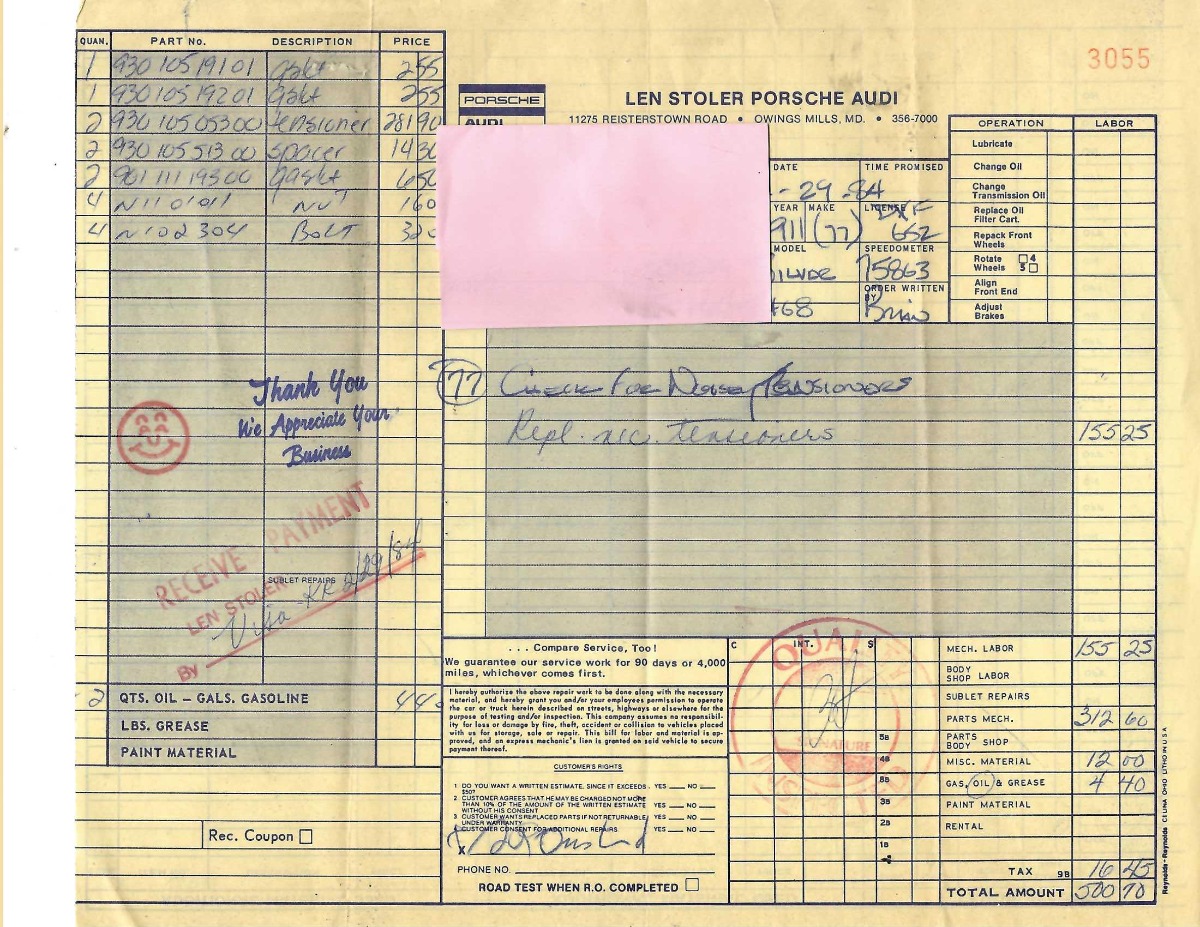 3055
QUAN. PART No. DESCRIPTION PRICE
1 930 105 191 01 gskt 2 55
1 930 105 192 01 gskt 2 55
2 930 105 053 00 tensioner 281 90
2 930 105 513 00 spacer 14 30
2 901 111 193 00 gaskt 6 50
4 N 11 01 01 1 NUT 1 60
4 N 102 304 BOLT 3 20
Thank You
We Appreciate Your
Business
RECEIVE PAYMENT
LEN STOLER
By Visa KR 2/29/84
SUBLET REPAIRS
2 QTS. OIL – GALS. GASOLINE 4 40
LBS. GREASE
PAINT MATERIAL
Rec. Coupon
PORSCHE
AUDI
LEN STOLER PORSCHE AUDI
11275 REISTERSTOWN ROAD • OWINGS MILLS, MD. • 356-7000
DATE TIME PROMISED
-29-84
YEAR MAKE LICENSE
911 (77) 652
MODEL SPEEDOMETER
75863
ORDER WRITTEN
BY
68 Brian
OPERATION LABOR
Lubricate
Change Oil
Change
Transmission Oil
Replace Oil
Filter Cart.
Repack Front
Wheels
Rotate 4
Wheels 5
Align
Front End
Adjust
Brakes
77 Check For Noisey Tensioners
Repl. nec. tensioners 155 25
. . . Compare Service, Too!
We guarantee our service work for 90 days or 4,000
miles, whichever comes first.
I hereby authorize the above repair work to be done along with the necessary
material, and hereby grant you and/or your employees permission to operate
the car or truck herein described on streets, highways or elsewhere for the
purpose of testing and/or inspection. This company assumes no responsibil-
ity for loss or damage by fire, theft, accident or collision to vehicles placed
with us for storage, sale or repair. This bill for labor and material is ap-
proved, and an express mechanic's lien is granted on said vehicle to secure
payment thereof.
CUSTOMER'S RIGHTS
1 DO YOU WANT A WRITTEN ESTIMATE, SINCE IT EXCEEDS YES NO
$50?
2 CUSTOMER AGREES THAT HE MAY BE CHARGED NOT MORE
THAN 10% OF THE AMOUNT OF THE WRITTEN ESTIMATE YES NO
WITHOUT HIS CONSENT
3 CUSTOMER WANTS REPLACED PARTS IF NOT RETURNABLE YES NO
UNDER WARRANTY
CUSTOMER CONSENT FOR ADDITIONAL REPAIRS YES NO
X
PHONE NO.
ROAD TEST WHEN R.O. COMPLETED
C INT. S
QUALITY
SIGNATURE
5B
4B
8B
3B
2B
1B
MECH. LABOR 155 25
BODY
SHOP LABOR
SUBLET REPAIRS
PARTS MECH. 312 60
PARTS
BODY SHOP
MISC. MATERIAL 12 00
GAS, OIL & GREASE 4 40
PAINT MATERIAL
RENTAL
TAX 9B 16 45
TOTAL AMOUNT 500 70
Reynolds + Reynolds CELINA OHIO LITHO IN U S A